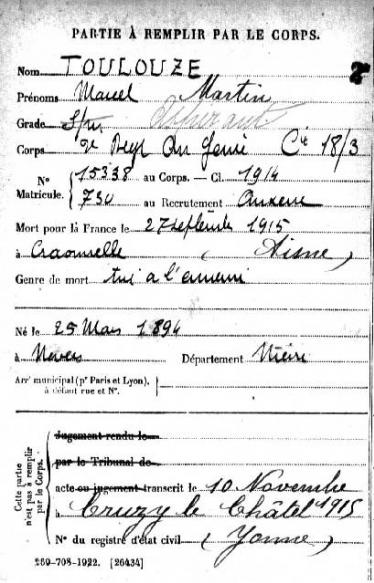 PARTIE À REMPLIR PAR LE CORPS.
Nom TOULOUZE
Prénoms Marcel Martin
Grade Spr Aspirant
Corps 2e Regt Du Génie Cie 18/3
N° Matricule. 15338 au Corps. — Cl. 1914
730 au Recrutement Auxerre
Mort pour la France le 27 septembre 1915
à Craonnelle (Aisne)
Genre de mort tué a l'ennemi
Né le 25 Mars 1894
à Nevers Département Nièvre
Arrt municipal (pr Paris et Lyon), à défaut rue et N°.
Cette partie n'est pas à remplir par le Corps.
Jugement rendu le
par le Tribunal de
acte ou jugement transcrit le 10 Novembre 1915
à Cruzy le Châtel
N° du registre d'état civil (Yonne)
269-708-1922. [26434]